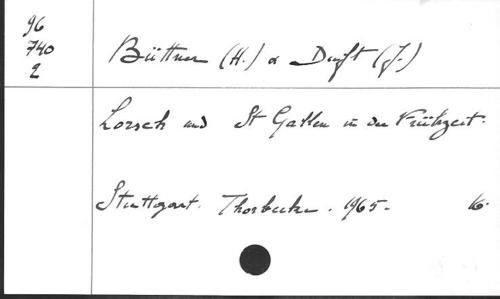 96
740
2
Büttner (H.) & Duft (J.)
Lorsch und St Gallen in der Frühzeit.
Stuttgart. Thorbecke. 1965- 16.